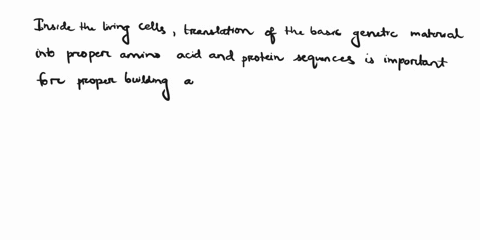 Inside the living cells, translation of the basic genetic material
into proper amino acid and protein sequences is important
fore proper building a